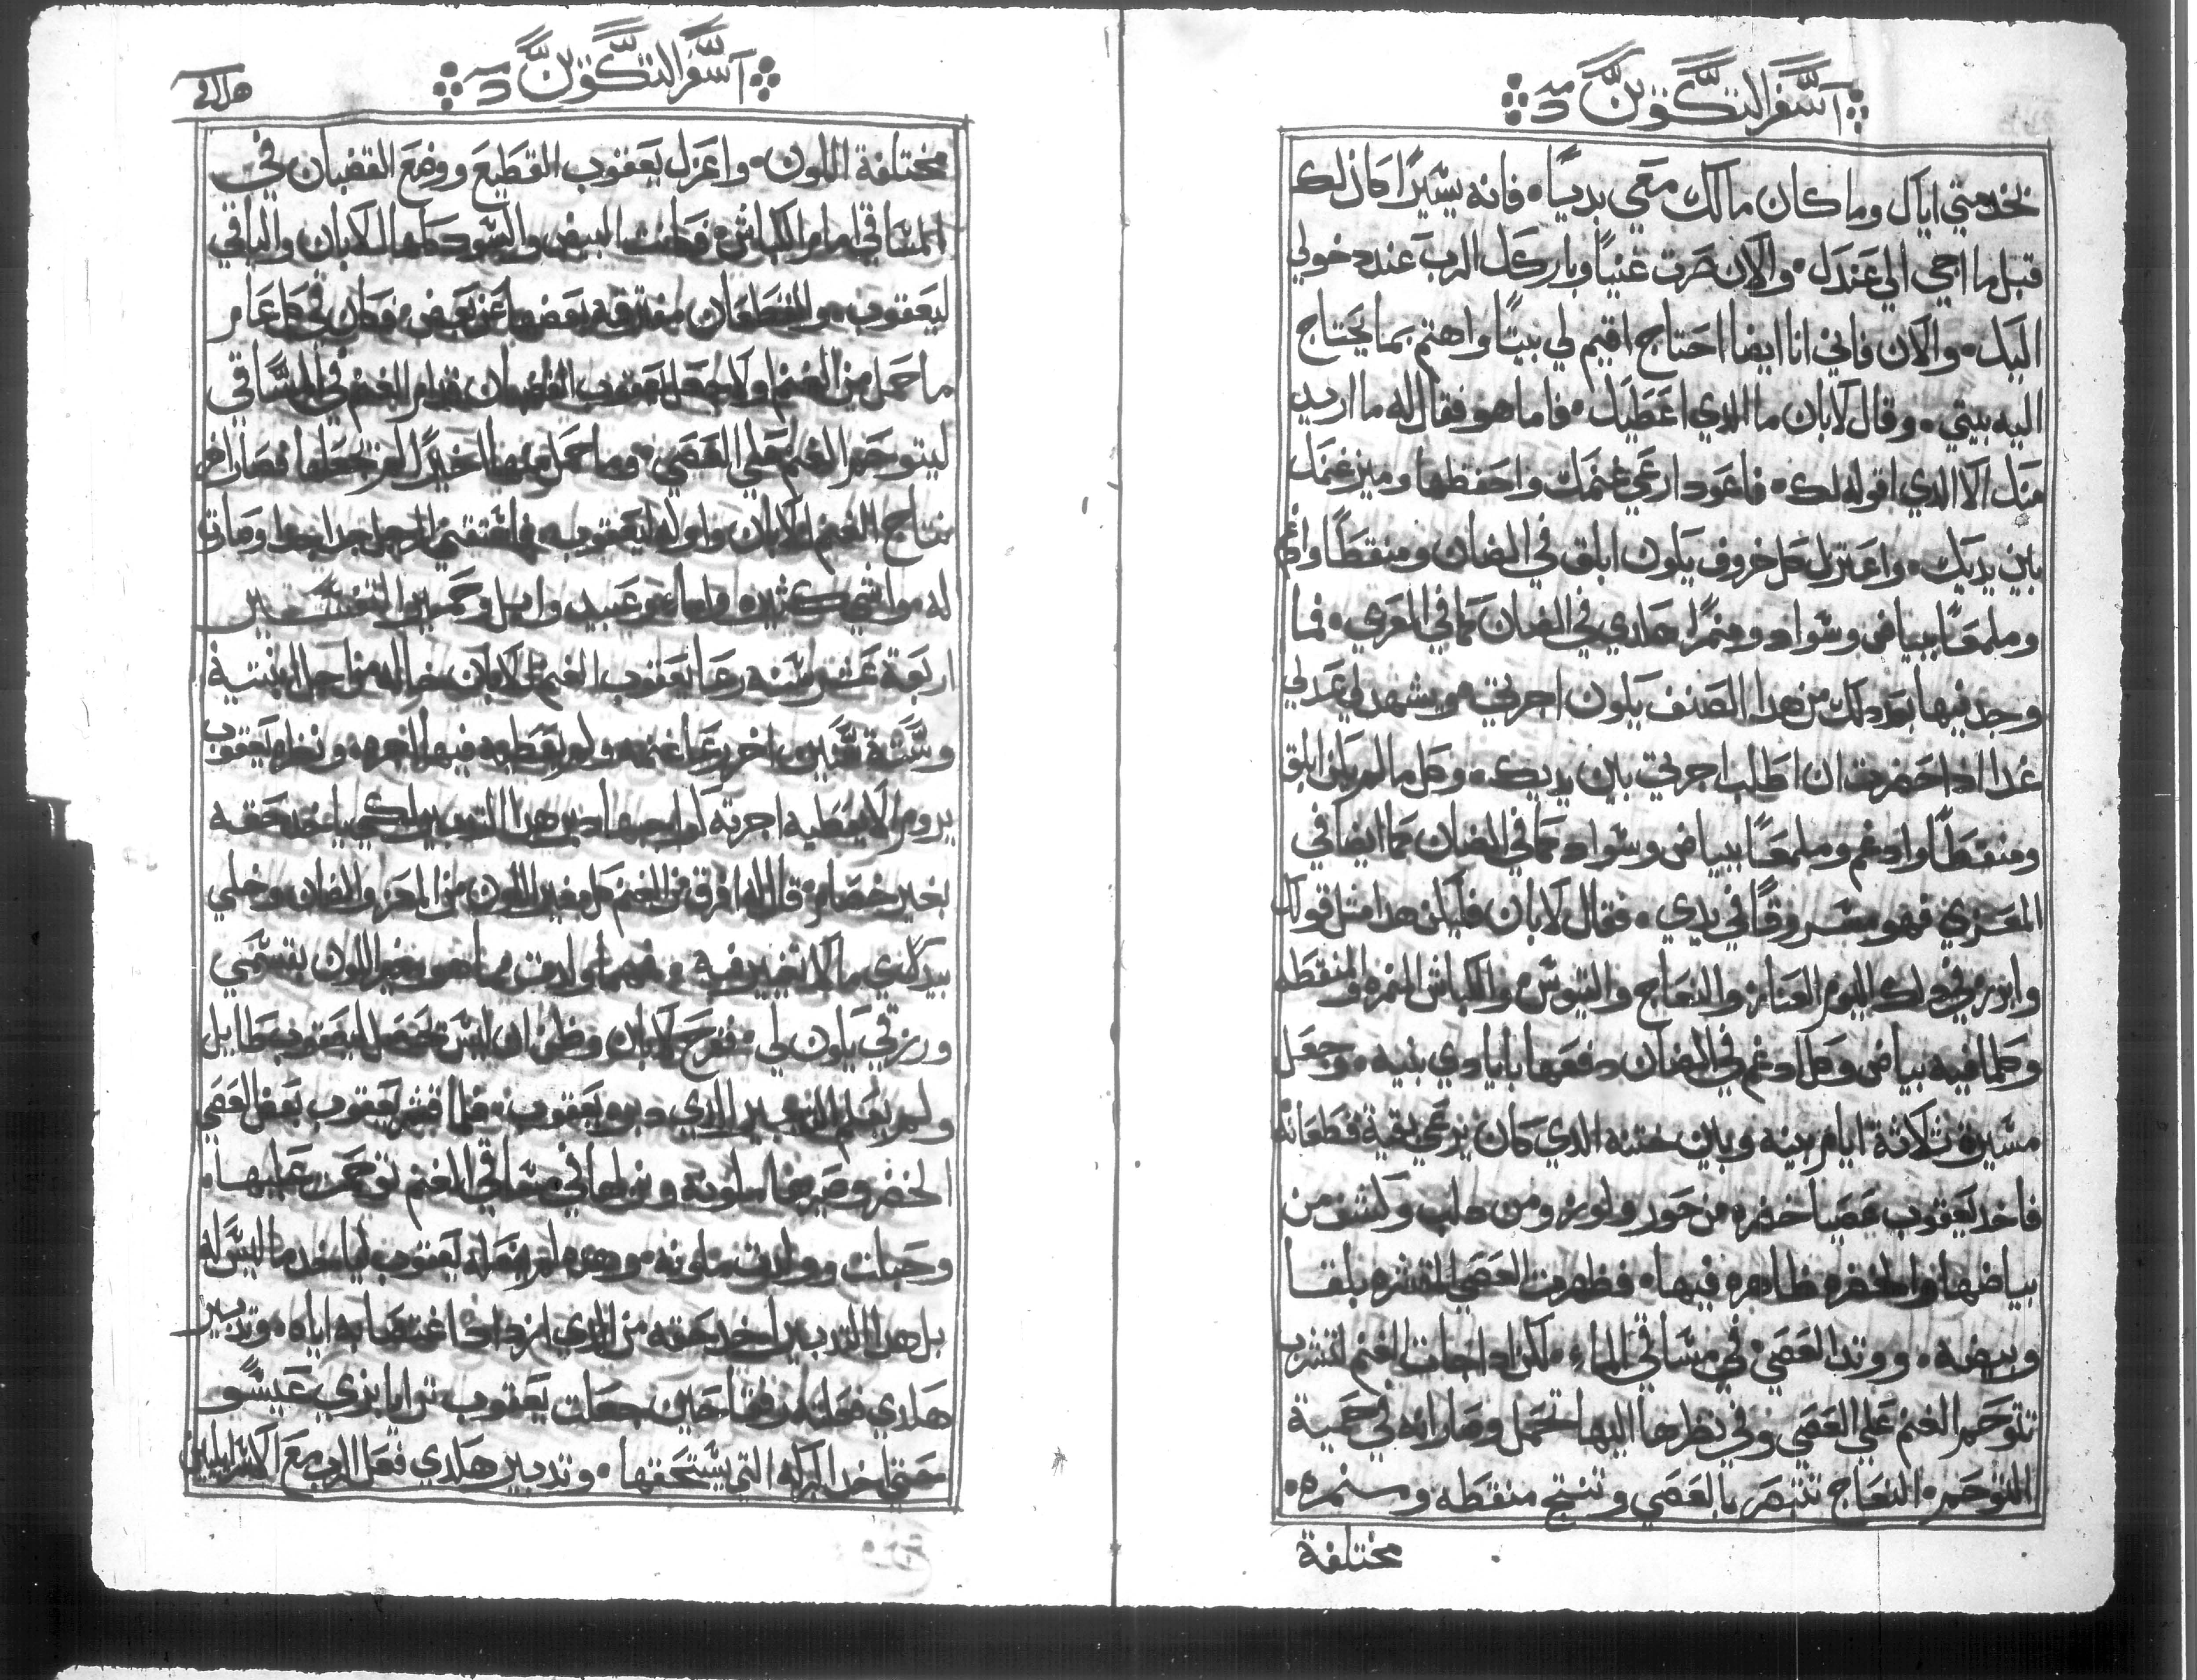 سفر التكوين
بخدمتي اياك وما كان مالك معي بديا فانه يسيرا كان لك
قبل ما اجي الي عندك والان صرت غنيا وباركك الرب عند دخولي
اليك والان فاني انا ايضا احتاج اقيم لي بيتا واهتم بما يحتاج
اليه بيتي وقال لابان ما الدي اعطيك فاما هو فقال له ما اريد
منك الا الدي اقوله لك فاعود ارعي غنمك واحفظها وميز غنمك
بين يديك واعتزل كل خروف يكون ابلق في الضان ومنقطا وادغم
وملمعا ببياض وسواد ومنمرا هكدي في الضان كما في المعزي فما
وجد فيها بعد دلك من هدا الصنف يكون اجرتي ويشهد لي عدلي
غدا ادا حضرت ان اطلب اجرتي بين يديك وكل ما لم يكن ابلق
ومنقطا وادغم وملمعا ببياض وسواد كما في الضان كما ايضا في
المعزي فهو مسروقا في يدي فقال لابان فليكن هدا متل قولك
وافرز في دلك اليوم العناز والنعاج والتيوس والكباش المنمره والمنقطه
وكلما فيه بياض وكل ادغم في الضان دفعها بايادي بنيه وجعل
مسيرة تلاتة ايام بينه وبين ختنه الدي كان يرعي بقية قطعانه
فاخد يعقوب عصيا خضره من حور ولوز ومن دلب وكشف من
بياضها والخضره ظاهره فيها فظهرت العصي المقشره بلقا
وبيضه ووتد العصي في مساقي الماء لكن ادا جات الغنم لتشرب
تتوحم الغنم علي العصي وفي نظرها اليها تحمل وصارانه في حمية
التوحم النعاج تتبصر بالعصي وتنتج منقطه ومنمره
مختلفة
سفر التكوين
مختلفة اللون واعزل يعقوب القطيع ووضع القضبان في
المساقي امام الكباش فكانت البيض والسود كلها للابان والباقي
ليعقوب والقطعان مفترقه بعضها عن بعض وكان في كل عام
ما حمل من الغنم اولا يجعل يعقوب القضبان قدام الغنم في المساقي
ليتوحم الغنم علي العصي وما حمل منها اخيرا لم يجعلها فصار اخر
نتاج الغنم للابان واوله ليعقوب فاستغني الرجل جدا جدا وصارت
له مواشي كثيره واماء وعبيد وابل وحمير التفسير
اربعة عشر سنه رعا يعقوب الغنم للابان خاله من اجل ابنتيه
وستة سنين اخر رعا غنمه ولم يعطيه فيها اجره ونظره يعقوب
يروم الا يعطيه اجرته هدا التدبير لكي ياخد حقه
بغير خصام قال له افرق من الغنم كل مغير اللون من المعز والضان وخلي
بيدي ما لا تغيير فيه ومهما ولدت مما هو مغير اللون بقسمي
ورزقي يكون لي ففرح لابان وظن ان ليس يحصل ليعقوب طايل
ولم يعلم التدبير الدي دبره يعقوب فلما قشر يعقوب بعض العصي
الخضر وصيرها ملونه ونزلها في مساقي الغنم توحمت عليها
وحبلت وولدت ملونه وهده لم يفعله يعقوب لياخد ما ليس له
بل هدا التدبير اخد حقه من الدي اراد اغتصابه اياه وتدبير
هكدي فعلته رفقا حين جعلت يعقوب تزايا بزي عيسو
حتي اخد البركه التي يستحقها وتدبير هكدي فعل الرب مع الاسراييليين